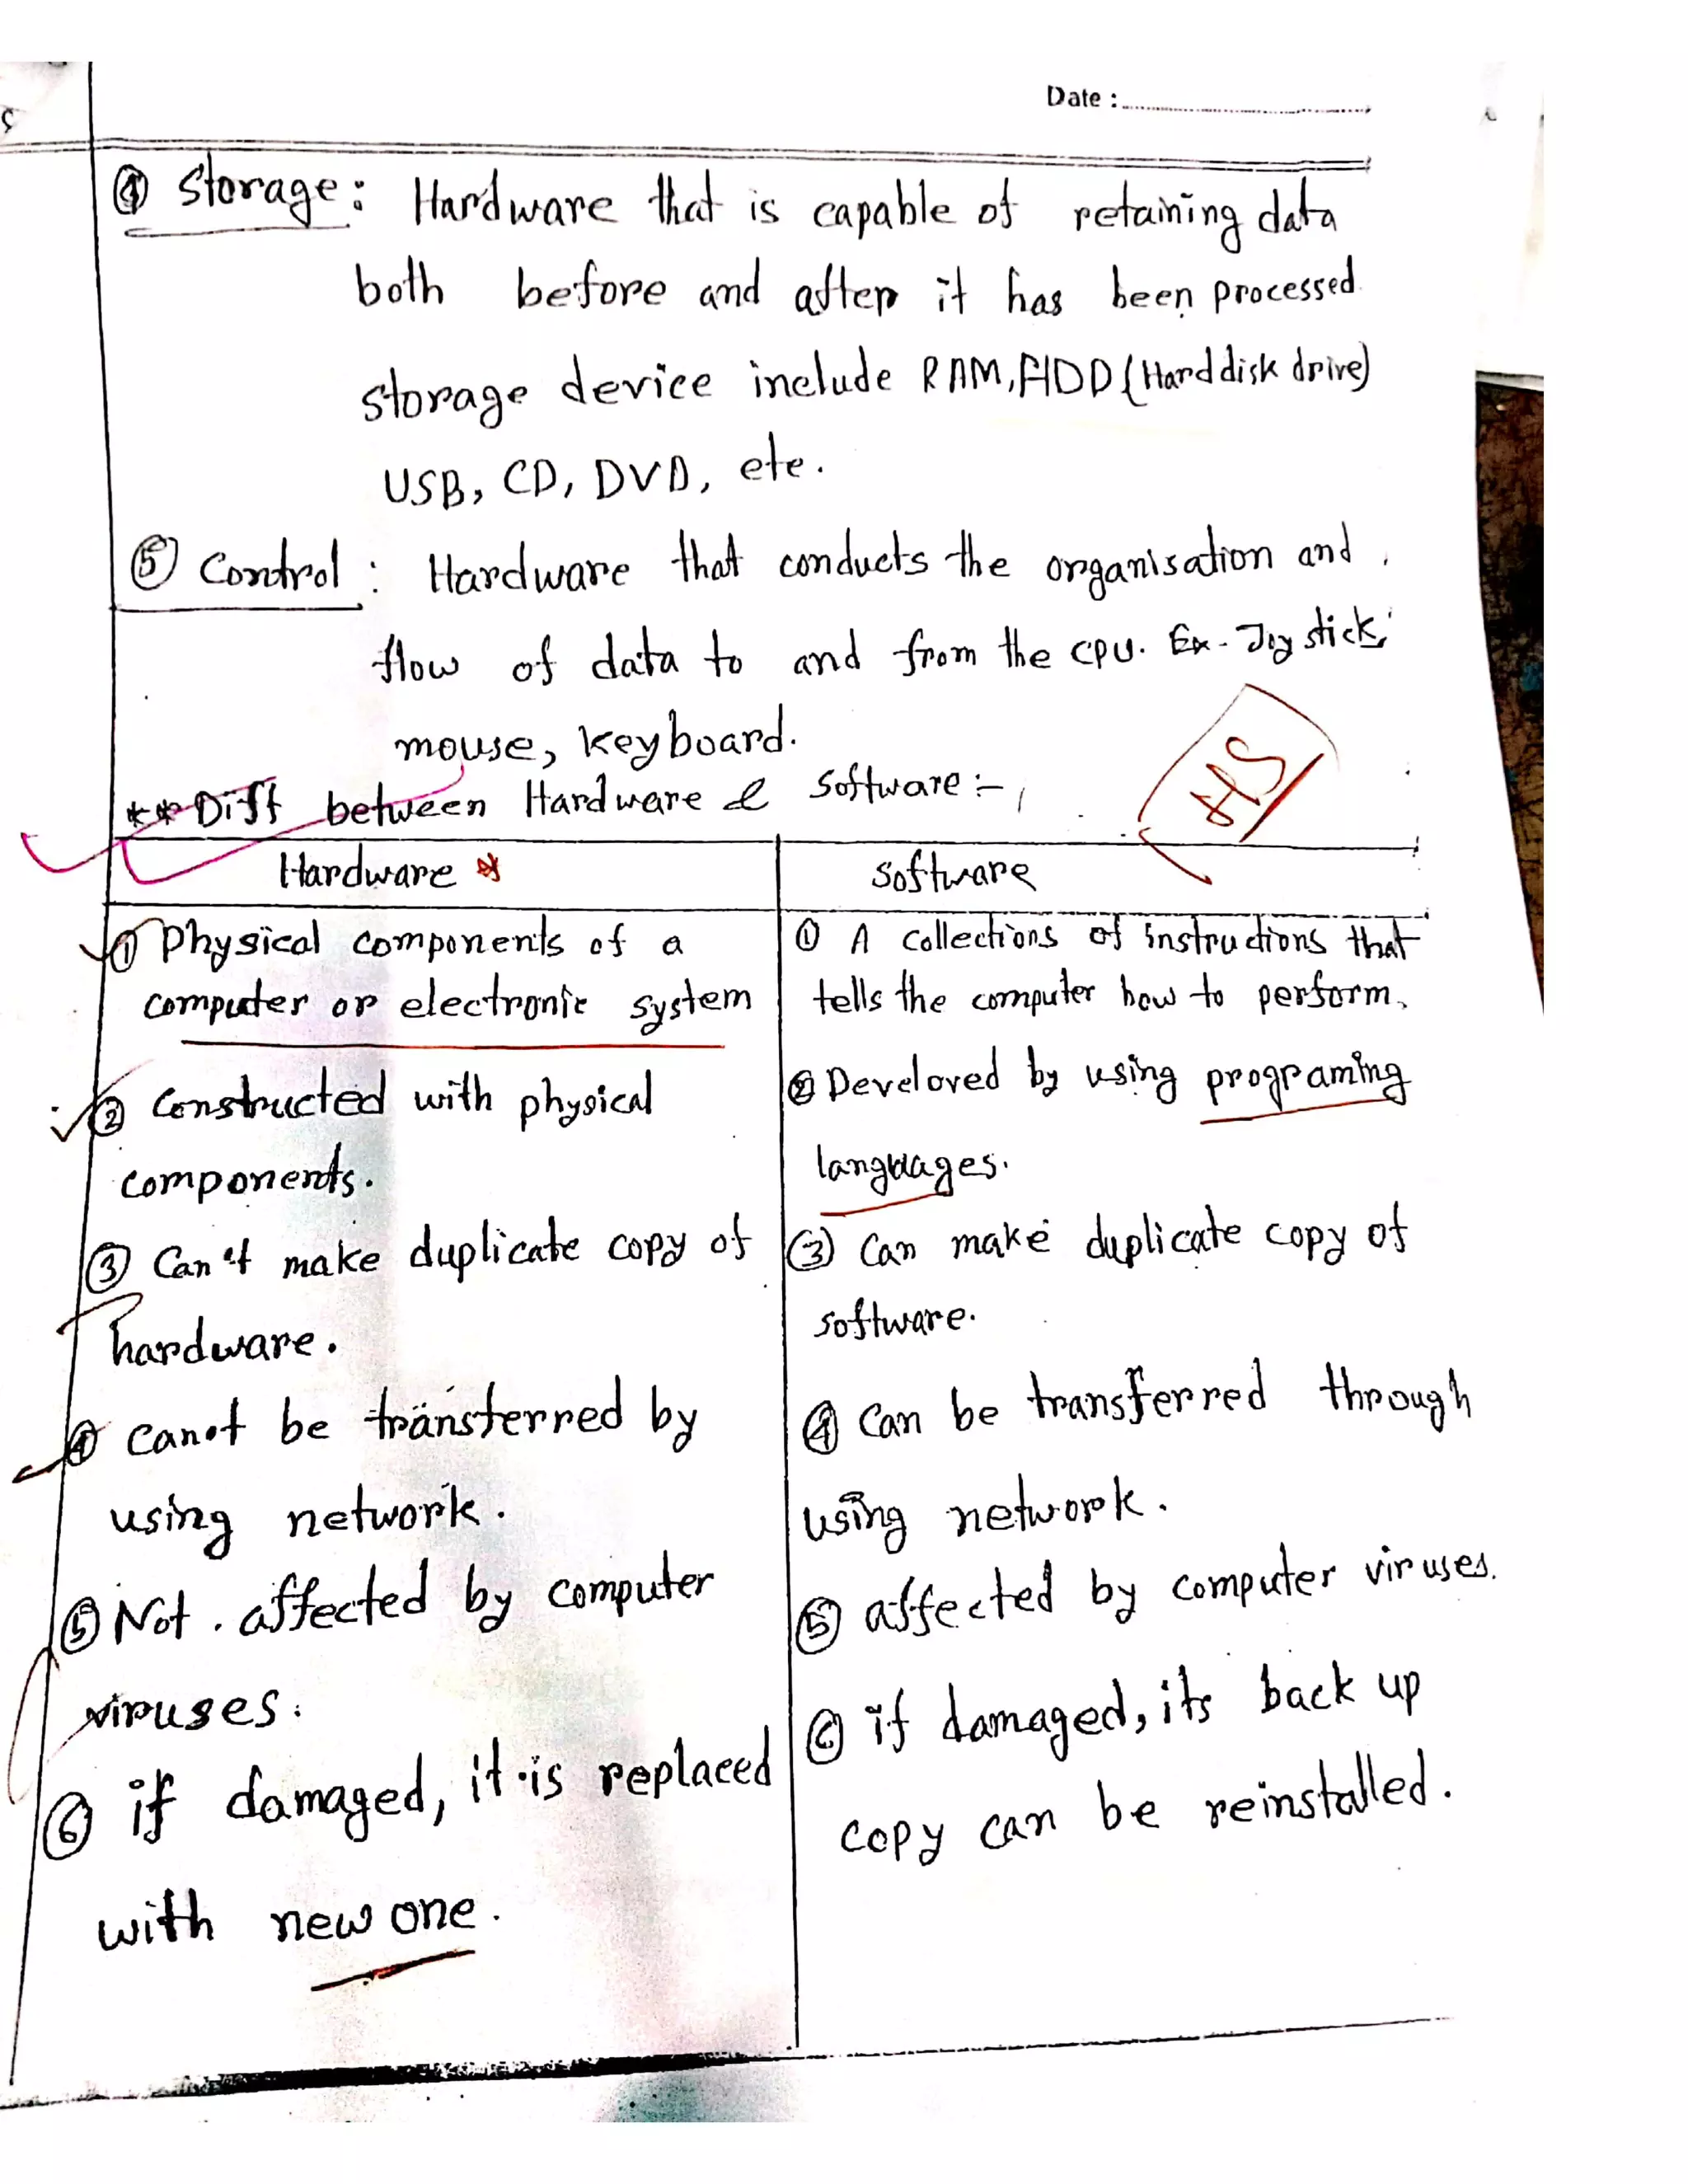 Date :
④ Storage: Hardware that is capable of retaining data
both before and after it has been processed.
storage device include RAM, HDD (Hard disk drive)
USB, CD, DVD, etc.
⑤ Control : Hardware that conducts the organisation and
flow of data to and from the CPU. Ex - Joy stick,
mouse, keyboard.
** Diff between Hardware & Software :-
Hardware
Software
① Physical components of a
computer or electronic system
② Constructed with physical
components.
③ Can't make duplicate copy of
hardware.
④ Canot be transferred by
using network.
⑤ Not affected by computer
viruses.
⑥ if damaged, it is replaced
with new one.
① A collections of instructions that
tells the computer how to perform.
② Develoved by using programing
languages.
③ Can make duplicate copy of
software.
④ Can be transferred through
using network.
⑤ affected by computer viruses.
⑥ if damaged, its back up
copy can be reinstalled.